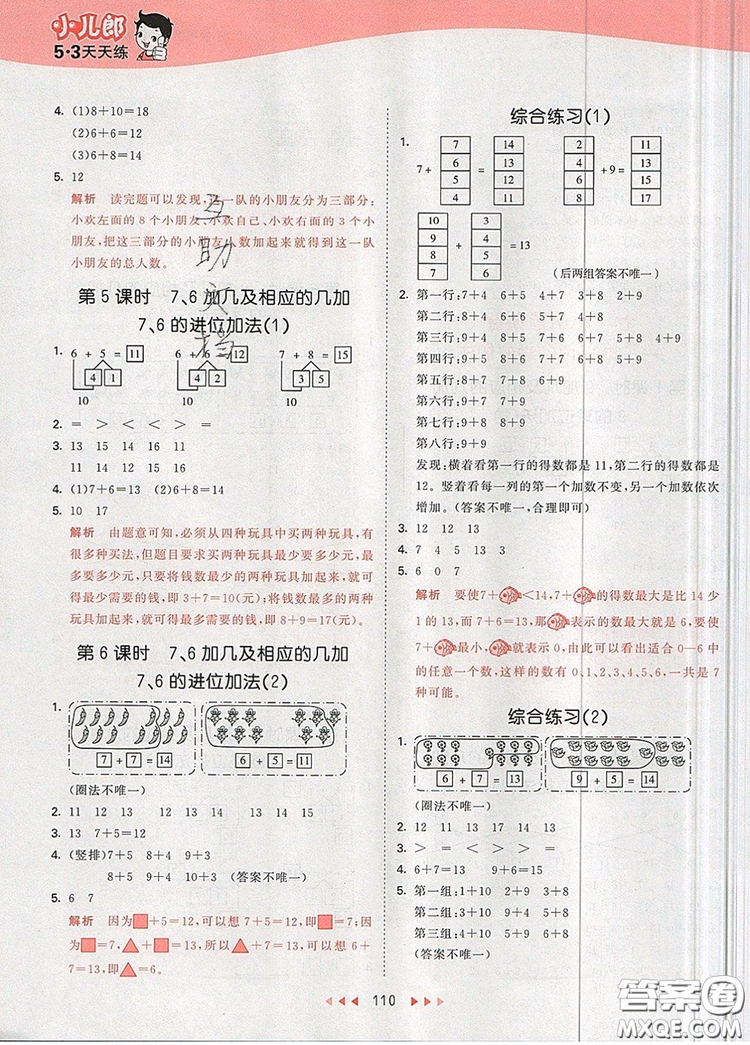 小儿郎
5·3天天练
4. (1)8+10=18
(2)6+6=12
(3)6+8=14
5. 12
解析 读完题可以发现,这一队的小朋友分为三部分:
小欢左面的8个小朋友、小欢自己、小欢右面的3个小
朋友,把这三部分的小朋友人数加起来就得到这一队
小朋友的总人数。
互助文档
第5课时 7、6加几及相应的几加
7、6的进位加法(1)
1. 6+5=11 6+6=12 7+8=15
4 1 4 2 3 5
10 10 10
2. = > < < = >
3. 13 15 14 16 11
11 14 12 15 16
4. (1)7+6=13 (2)6+8=14
5. 10 17
解析 由题意可知,必须从四种玩具中买两种玩具,有
很多种买法,但题目要求买两种玩具最少要多少元,最
多要多少元,只要将钱数最少的两种玩具加起来,就可
得到最少需要的钱,即3+7=10(元);将钱数最多的玩
具加起来,就可得到最多需要的钱,即8+9=17(元)。
第6课时 7、6加几及相应的几加
7、6的进位加法(2)
1.
7+7=14 6+5=11
(圈法不唯一)
2. 11 12 13 12 13 14 13 14 15
3. 13 7+5=12
4. (竖排)7+5 8+4 9+3
8+5 9+4 6+7 (答案不唯一)
5. 6 7
解析 因为■+5=12,可以想7+5=12,即■=7;因
为■=7,▲+■=13,所以▲+7=13,可以想6+
7=13,即▲=6。
综合练习(1)
1. 7 14 2 11
7+ 6 = 13 5 +9= 14
5 12 4 13
4 11 7 16
10 3
9 + 4 =13
8 5
7 6
(后两组答案不唯一)
2. 第一行:7+4 6+5 4+7 3+8 2+9
第二行:8+4 7+5 5+7 4+8 3+9
第三行:9+4 8+5 7+6 6+7 5+8 4+9
第四行:9+5 8+6 7+7 6+8 5+9
第五行:8+7 7+8 6+9
第六行:9+7 8+8 7+9
第七行:9+8 8+9
第八行:9+9
发现:横着看第一行的得数都是11,第二行的得数都是
12。竖着看每一列的第一个加数不变,另一个加数依次
增加。(答案不唯一,合理即可)
3. 12 12 13
4. 7 4 5 13
5. 6 0 7
解析 要使7+<14,7+的得数最大是比14少
1的13,而7+6=13,那表示的数最大就是6,要使
7+最小,就表示0,由此可以看出适合0—6中
的任意一个数,这样的数有0、1、2、3、4、5、6,一共是7
种可能。
综合练习(2)
1.
6+7=13 9+5=14
(圈法不唯一)
2. 12 11 13 17 14 13
3. = = > > < >
4. 6+7=13 9+6=15
5. 第一组:1+10 2+9 3+8
第二组:3+10 4+9 5+8
第三组:4+10 5+9 6+8
(答案不唯一)
110
答案圈
MXQE.COM